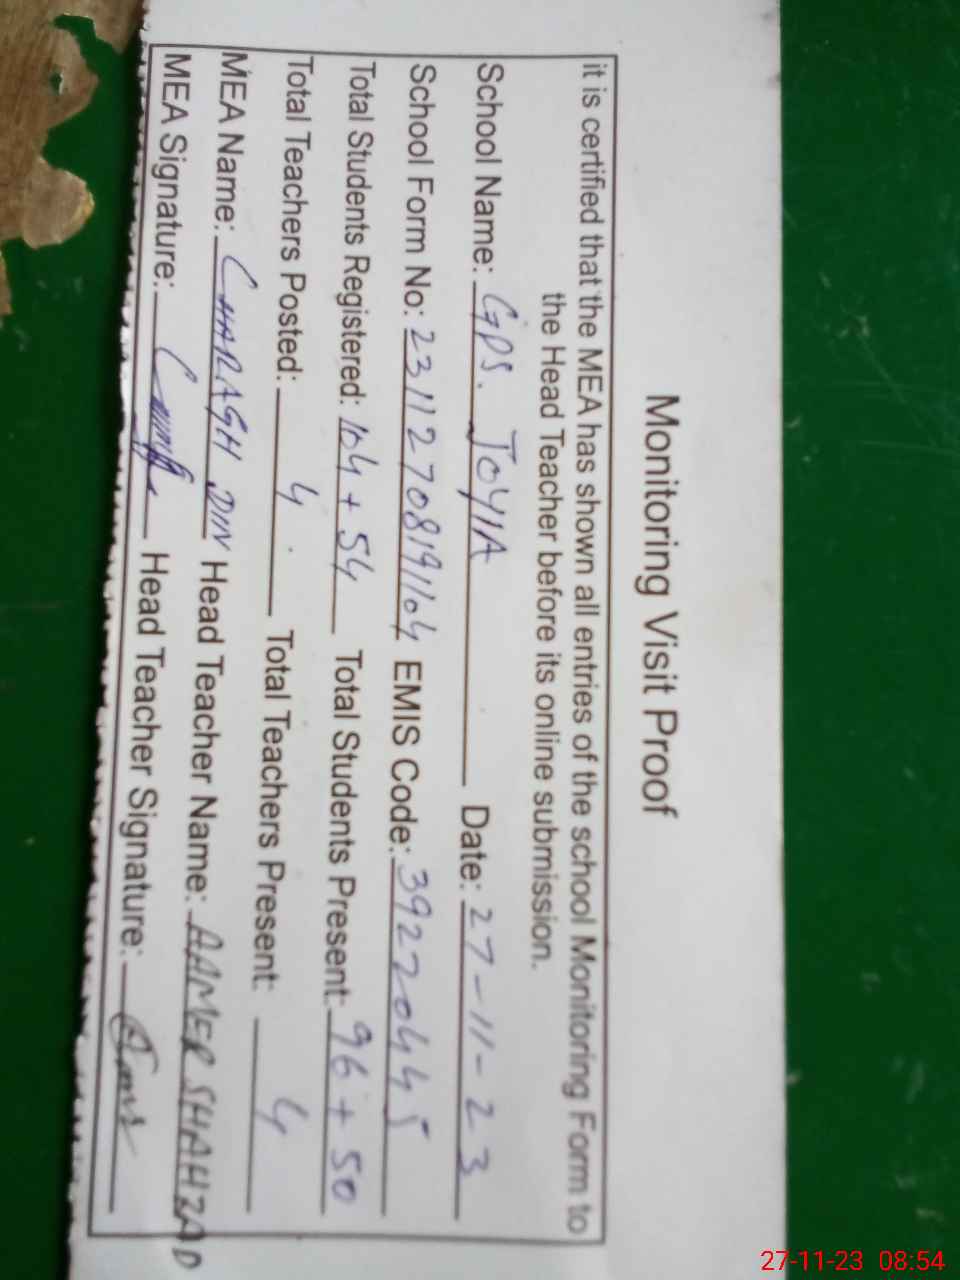 Monitoring Visit Proof
it is certified that the MEA has shown all entries of the school Monitoring Form to
the Head Teacher before its online submission.
School Name: GPS. JOYIA Date: 27-11-23
School Form No: 23112708191104 EMIS Code: 39220445
Total Students Registered: 104 + 54 Total Students Present: 96 + 50
Total Teachers Posted: 4 Total Teachers Present: 4
MEA Name: CHARAGH DIN Head Teacher Name: AAMER SHAHZAD
MEA Signature: Head Teacher Signature:
27-11-23 08:54